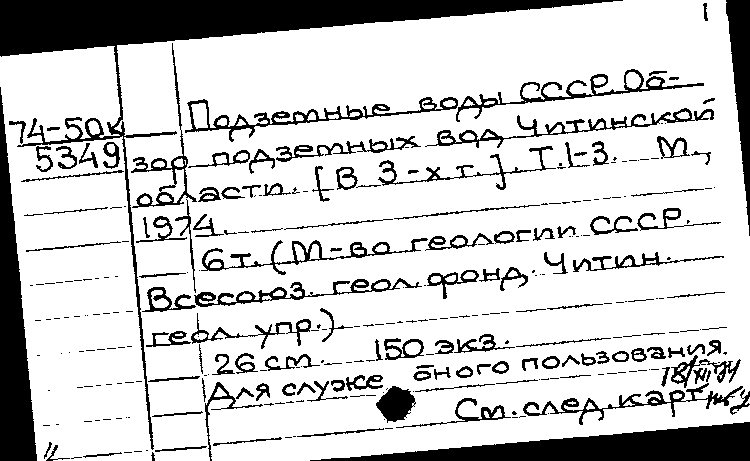 1
Подземные воды СССР. Об-
74-50к
5349 зор подземных вод Читинской
области. [В 3-х т.]. Т.1-3. М.,
1974.
6т. (М-во геологии СССР.
Всесоюз. геол. фонд. Читин.
геол. упр.).
26 cm. 150 экз.
Для служебного пользования.
18/XII 74
См. след. карт